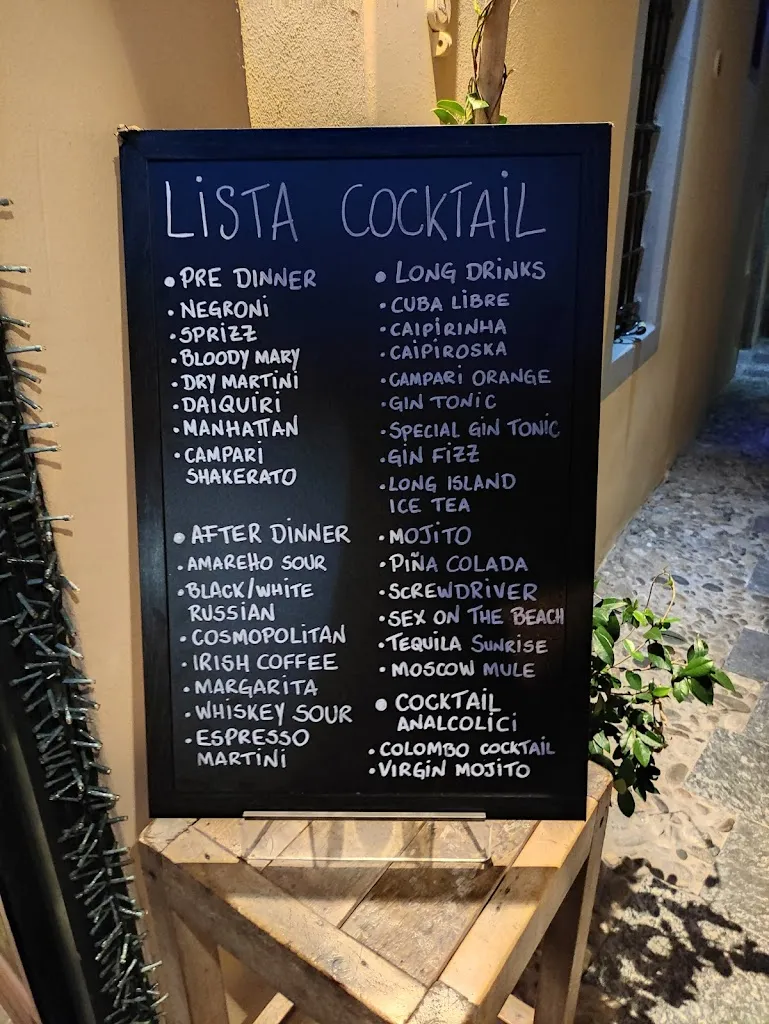 LISTA COCKTAIL
• PRE DINNER
• NEGRONI
• SPRIZZ
• BLOODY MARY
• DRY MARTINI
• DAIQUIRI
• MANHATTAN
• CAMPARI
SHAKERATO
• AFTER DINNER
• AMAREHO SOUR
• BLACK/WHITE
RUSSIAN
• COSMOPOLITAN
• IRISH COFFEE
• MARGARITA
• WHISKEY SOUR
• ESPRESSO
MARTINI
• LONG DRINKS
• CUBA LIBRE
• CAIPIRINHA
• CAIPIROSKA
• CAMPARI ORANGE
• GIN TONIC
• SPECIAL GIN TONIC
• GIN FIZZ
• LONG ISLAND
ICE TEA
• MOJITO
• PIÑA COLADA
• SCREWDRIVER
• SEX ON THE BEACH
• TEQUILA SUNRISE
• MOSCOW MULE
• COCKTAIL
ANALCOLICI
• COLOMBO COCKTAIL
• VIRGIN MOJITO